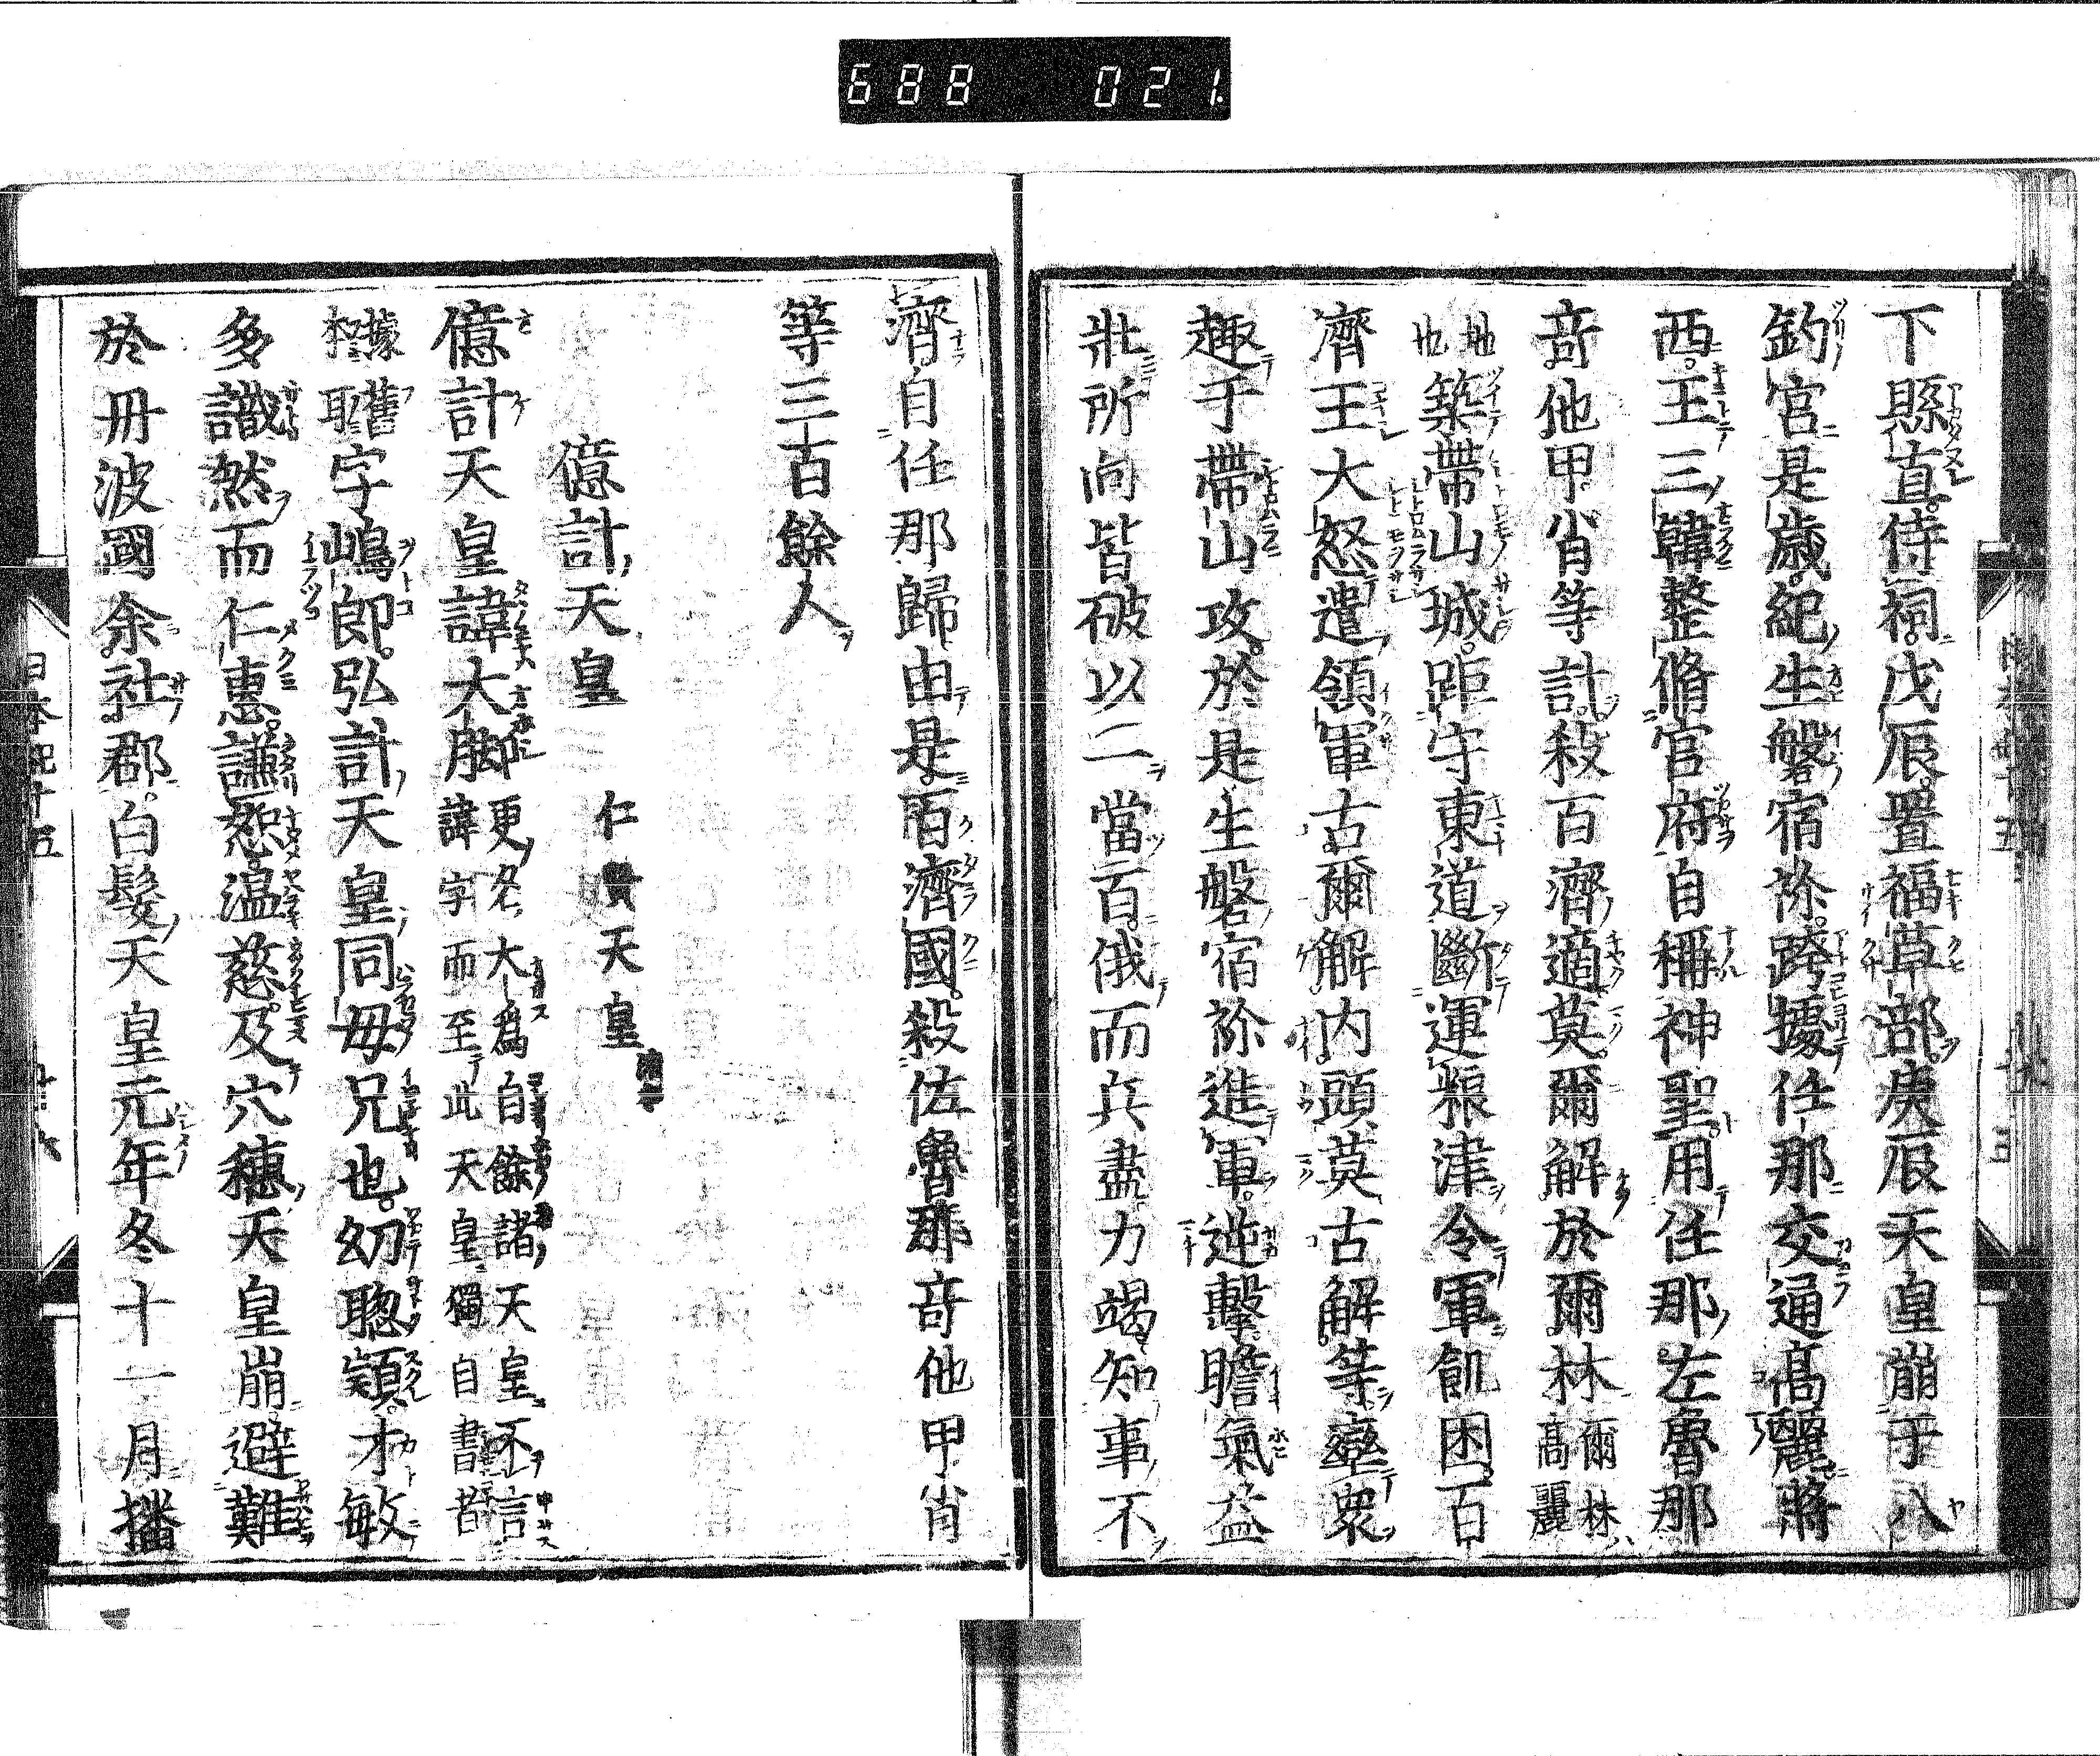 688 021.
下縣直侍祠戊辰置福草部庚辰天皇崩于八
釣宮是歲紀生磐宿祢跨據任那交通髙麗將
西王三韓整脩官府自稱神聖用任那左魯那
竒他甲肖等計殺百濟適莫爾解於爾林爾林髙麗
地也築帶山城距守東道斷運粮津令軍飢困百
濟王大怒遣領軍古爾解内頭莫古解等率衆
趣于帶山攻於是生磐宿祢進軍逆擊膽氣益
壯所向皆破以一當百俄而兵盡力竭知事不
濟自任那歸由是百濟國殺佐魯那竒他甲肖
等三百餘人
億計天皇 仁賢天皇
億計天皇諱大脚更名大爲自餘諸天皇不言諱字而至此天皇獨自書者
據舊本耳字嶋郎弘計天皇同母兄也幼聰穎才敏
多識然而仁惠謙恕温慈及穴穗天皇崩避難
於丹波國余社郡白髮天皇元年冬十一月播
日本紀十五